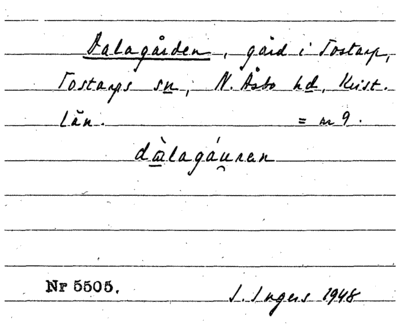 Dalagården, gård i Tostarp,
Tostarps sn, N. Åsbo hd, Krist.
län. = nr 9.
dàlagá̯uṙen
Nr 5505. I. Ingers 1948